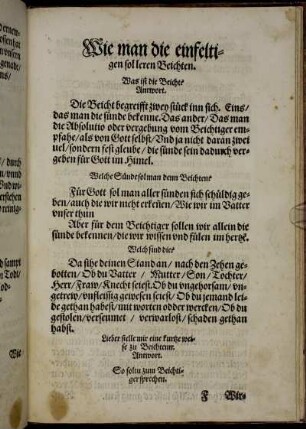 Wie man die einfelti-
gen sol leren Beichten.
Was ist die Beicht?
Antwort.
Die Beicht begreifft zwey stück inn sich. Eins/
das man die sünde bekenne. Das ander/ Das man
die Absolutio oder vergebung vom Beichtiger em-
pfahe/ als von Gott selbst/ Und ja nicht daran zwei-
uel/ sondern fest gleube/ die sünde sein dadurch ver-
geben für Gott im Himel.
Welche Sünde sol man denn Beichten?
Für Gott sol man aller sünden sich schüldig ge-
ben/ auch die wir nicht erkeñen/ Wie wir im Vatter
vnser thun
Aber für dem Beichtiger sollen wir allein die
sünde bekennen/ die wir wissen vnd fülen im hertzē.
Welch sind die?
Da sihe deinen Standan/ nach den Zehen ge-
botten/ Ob du Vatter/ Mutter/ Son/ Tochter/
Herr/ Fraw/ Knecht seiest. Ob du vngehorsam/ vn-
getrew/ vnfleissig gewesen seiest/ Ob du jemand lei-
de gethan habest/ mit worten odder wercken/ Ob du
gestolen/ verseumet/ verwarlost/ schaden gethan
habst.
Lieber stelle mir eine kurtze wei-
se zu Beichten.
Antwort.
So soltu zum Beichti-
ger sprechen.
F Wir-